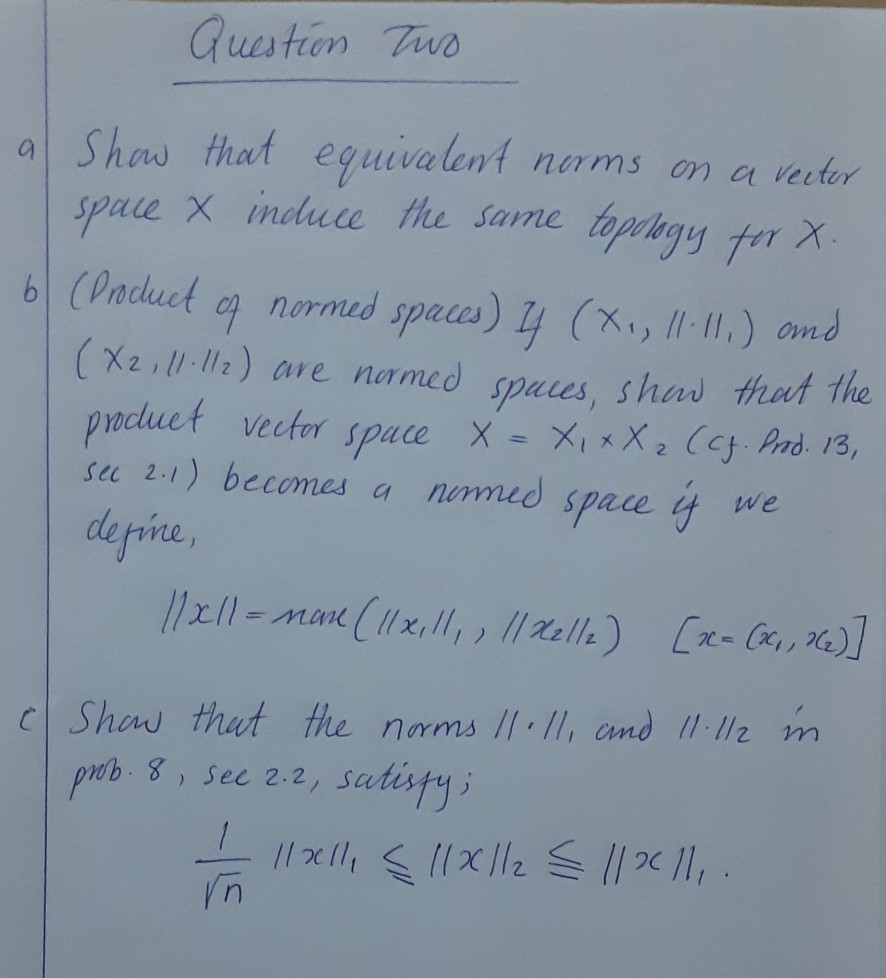 Question Two
a Show that equivalent norms on a vector
space X induce the same topology for X.
b (Product of normed spaces) If (X₁, ||·||₁) and
(X₂, ||·||₂) are normed spaces, show that the
product vector space X = X₁ × X₂ (cf. Prob. 13,
sec 2.1) becomes a normed space if we
define,
||x|| = max(||x₁||₁, ||x₂||₂) [x = (x₁, x₂)]
c Show that the norms ||·||₁ and ||·||₂ in
prob. 8, sec 2.2, satisfy;
1/√n ||x||₁ ≦ ||x||₂ ≦ ||x||₁.